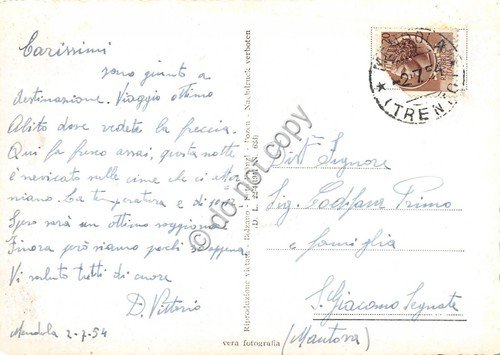 Carissimi
sono giunto a
destinazione. Viaggio ottimo
Alito dove vedete la freccia.
Qui fa fresco assai, questa notte
è nevicato sulle cime che ci
niano. La temperatura è di
Spero sarà un ottimo soggiorno
Finora però siamo pochi
Vi saluto tutti di cuore
D. Vittorio
Mendola 2-7-54
Riproduzione vietata Nachdruck verboten
vera fotografia
do not copy
(TRENTO)
Signore
Sig. Primo
e famiglia
S. Giacomo Segnate
(Mantova)